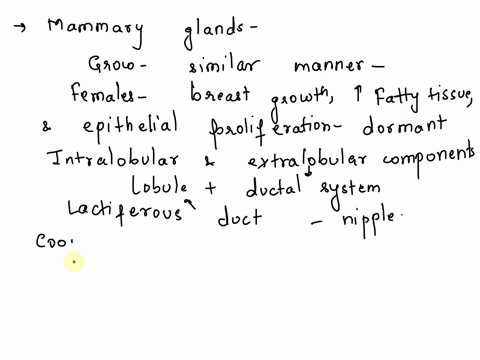 → Mammary glands-
Grow- similar manner-
Females- breast growth, ↑ Fatty tissue,
& epithelial proliferation- dormant
Intralobular & extralobular components
Lobule + ductal system
Lactiferous duct - nipple.
Coo